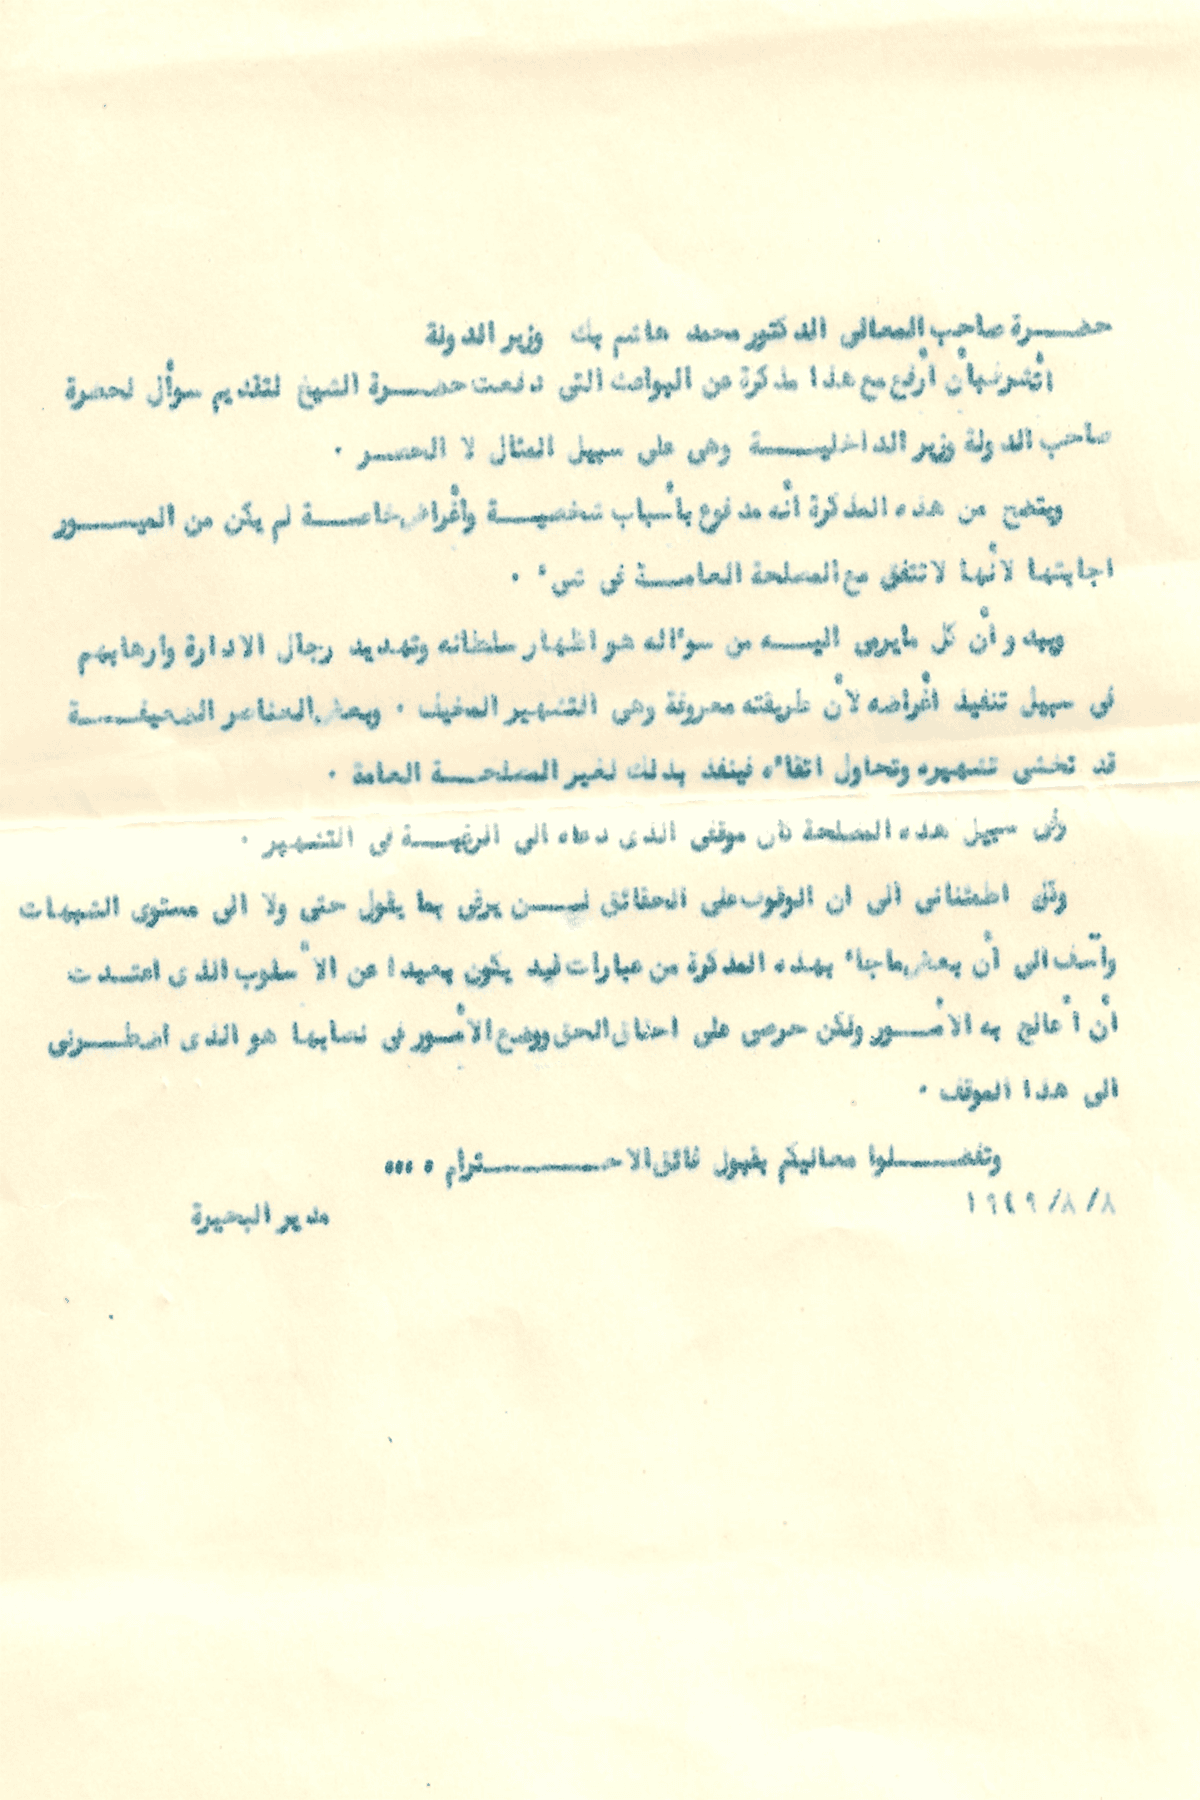 حضرة صاحب المعالى الدكتور محمد هاشم بك وزير الدولة
أتشرف بأن أرفع مع هذا مذكرة عن البواعث التى دفعت حضرة الشيخ لتقديم سوأل لحضرة
صاحب الدولة وزير الداخلية وهى على سبيل المثال لا الحصر ٠
ويتضح من هذه المذكرة أنه مدفوع بأسباب شخصية وأغراض خاصة لم يكن من الميسور
اجابتها لأنها لا تتفق مع المصلحة العامة فى شىء ٠
ويبدو أن كل مايرمى اليه من سوءاله هو اظهار سلطانه وتهديد رجال الادارة وارهابهم
فى سبيل تنفيذ أغراضه لأن طريقته معروفة وهى التشهير المخيف ٠ وبعض العناصر الضعيفة
قد تخشى تشهيره وتحاول اتقاءه فينفذ بذلك لغير المصلحة العامة ٠
وفى سبيل هذه المصلحة كان موقفى الذى دعاه الى الرغبة فى التشهير ٠
وثق اطمئنانى الى ان الوقوف على الحقائق لن يرقى بما يقول حتى ولا الى مستوى الشبهات
وآسف الى أن بعض ماجاء بهذه المذكرة من عبارات فيد يكون بعيدا عن الأسلوب الذى اعتدت
أن أعالج به الأمور ولكن حرصى على احقاق الحق ووضع الأمور فى نصابها هو الذى اضطرنى
الى هذا الموقف ٠
وتفضلوا معاليكم بقبول فائق الاحترام ٠ ٠٠٠
٨/ ٨/ ١٩٤٩
مدير البحيرة